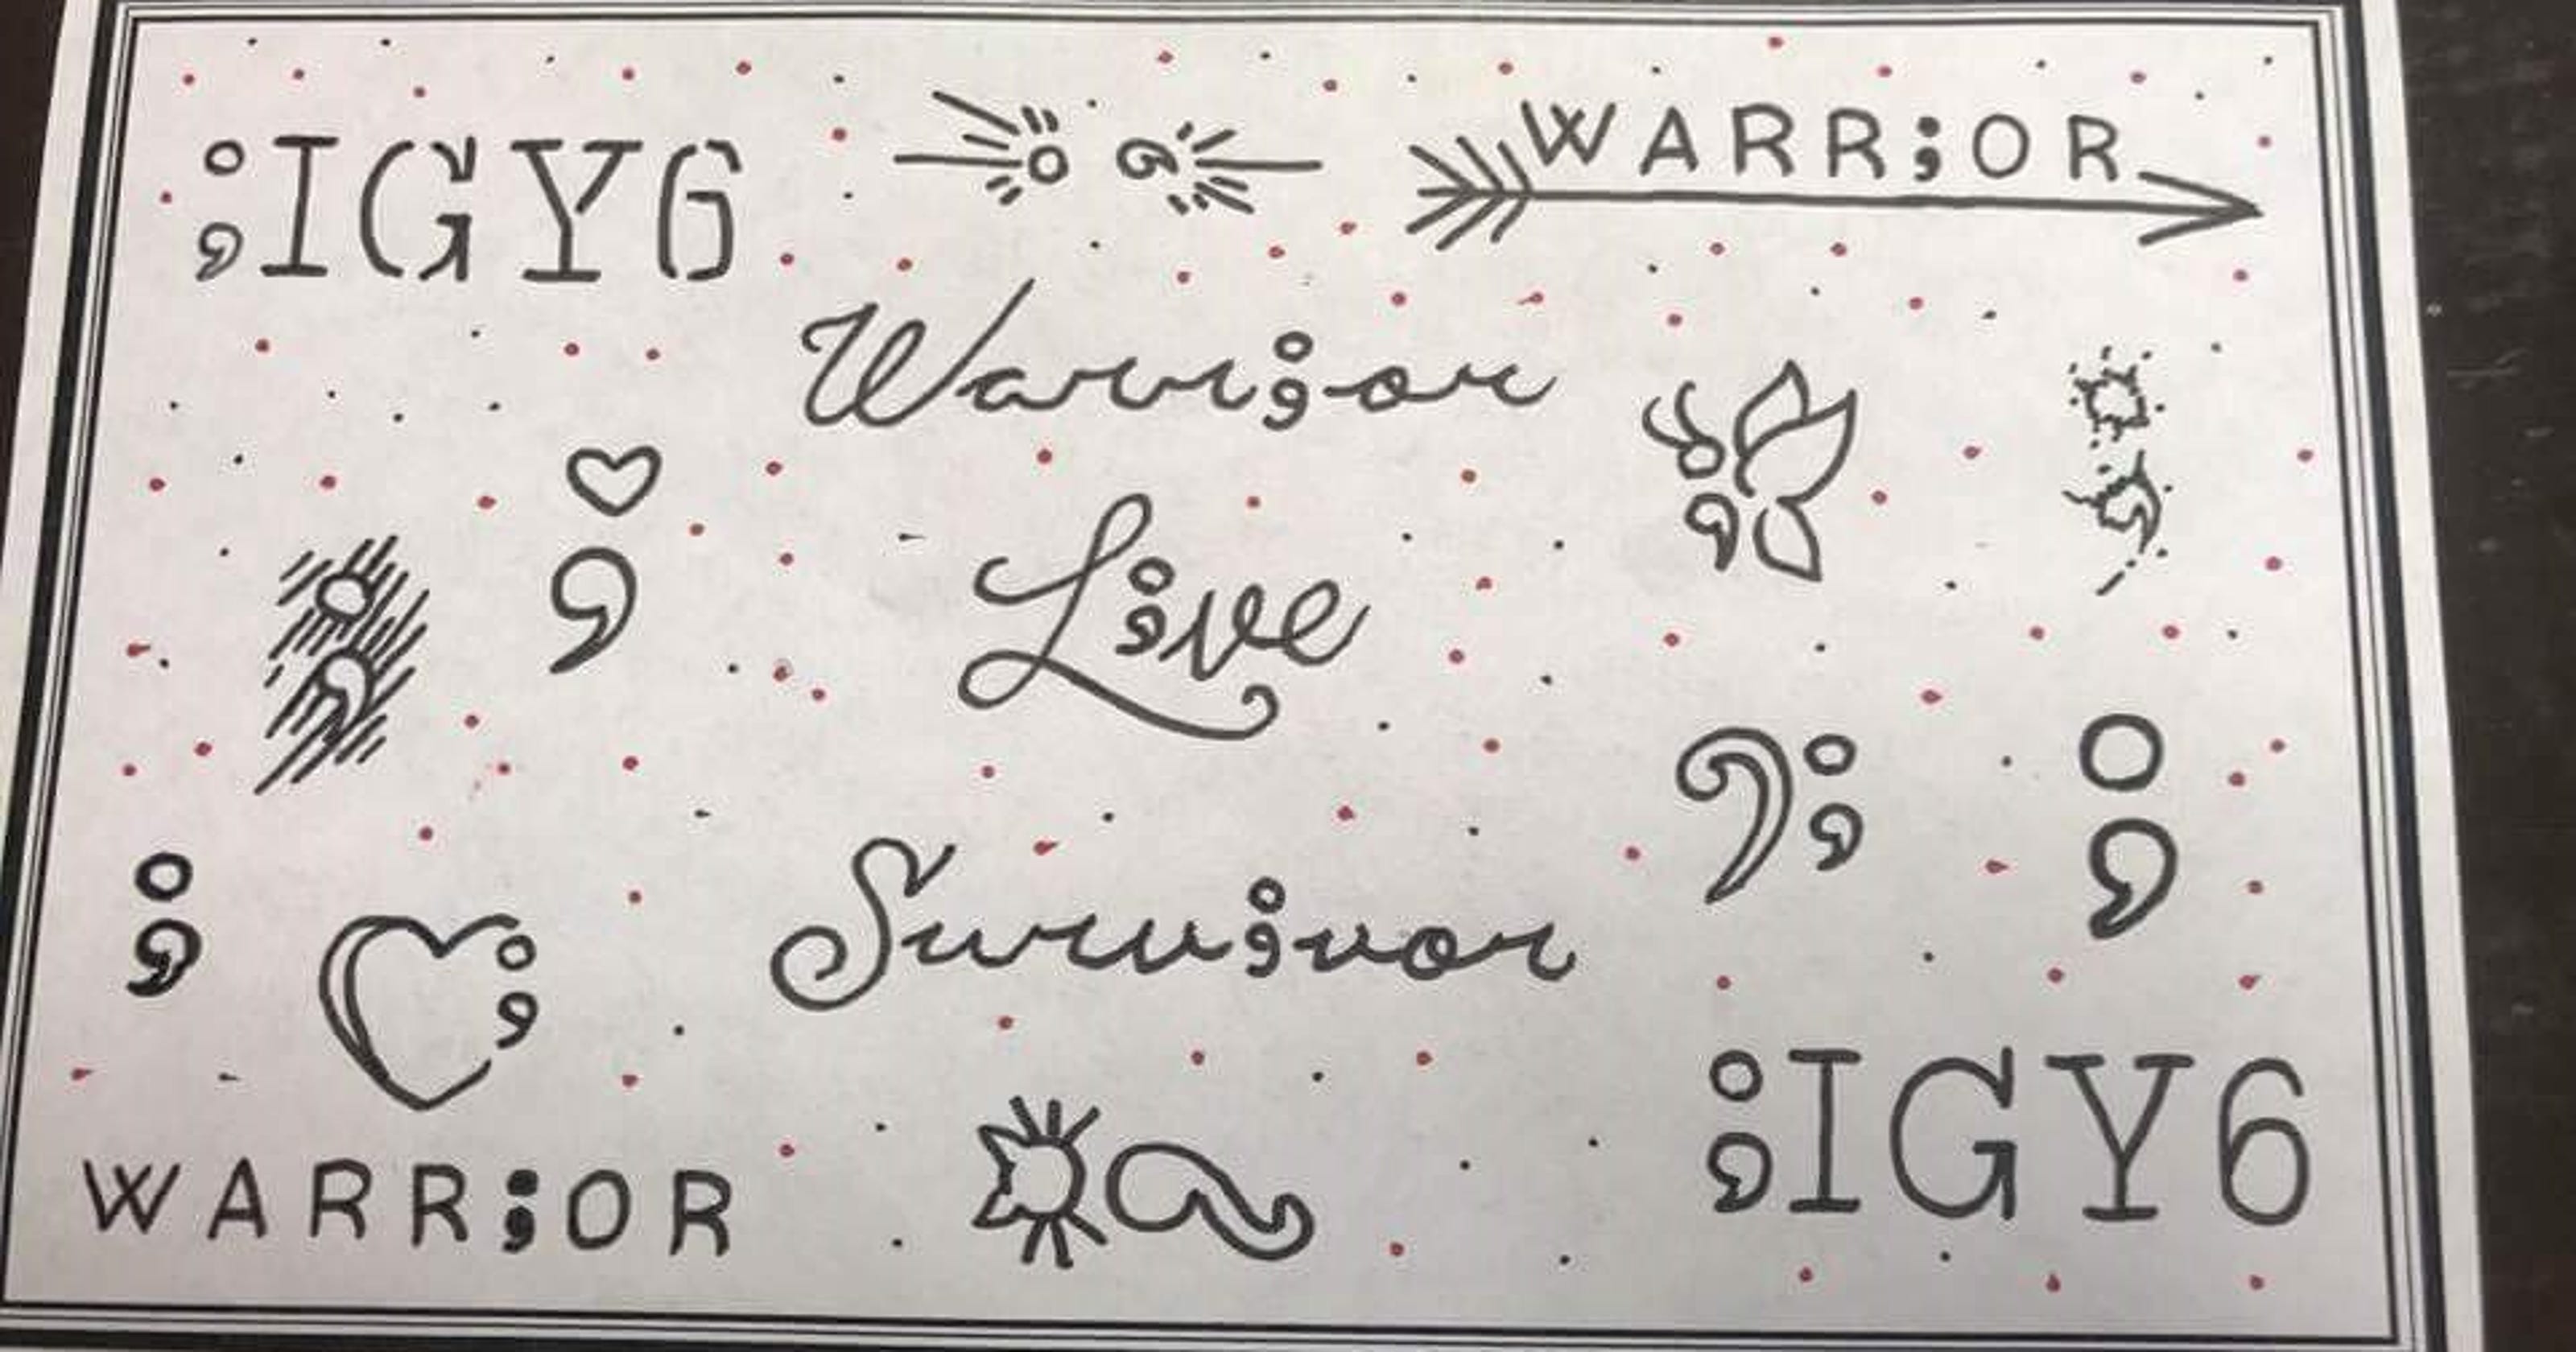 ;IGY6
WARR;OR
Warr;or
L;ve
Surv;vor
WARR;OR
;IGY6